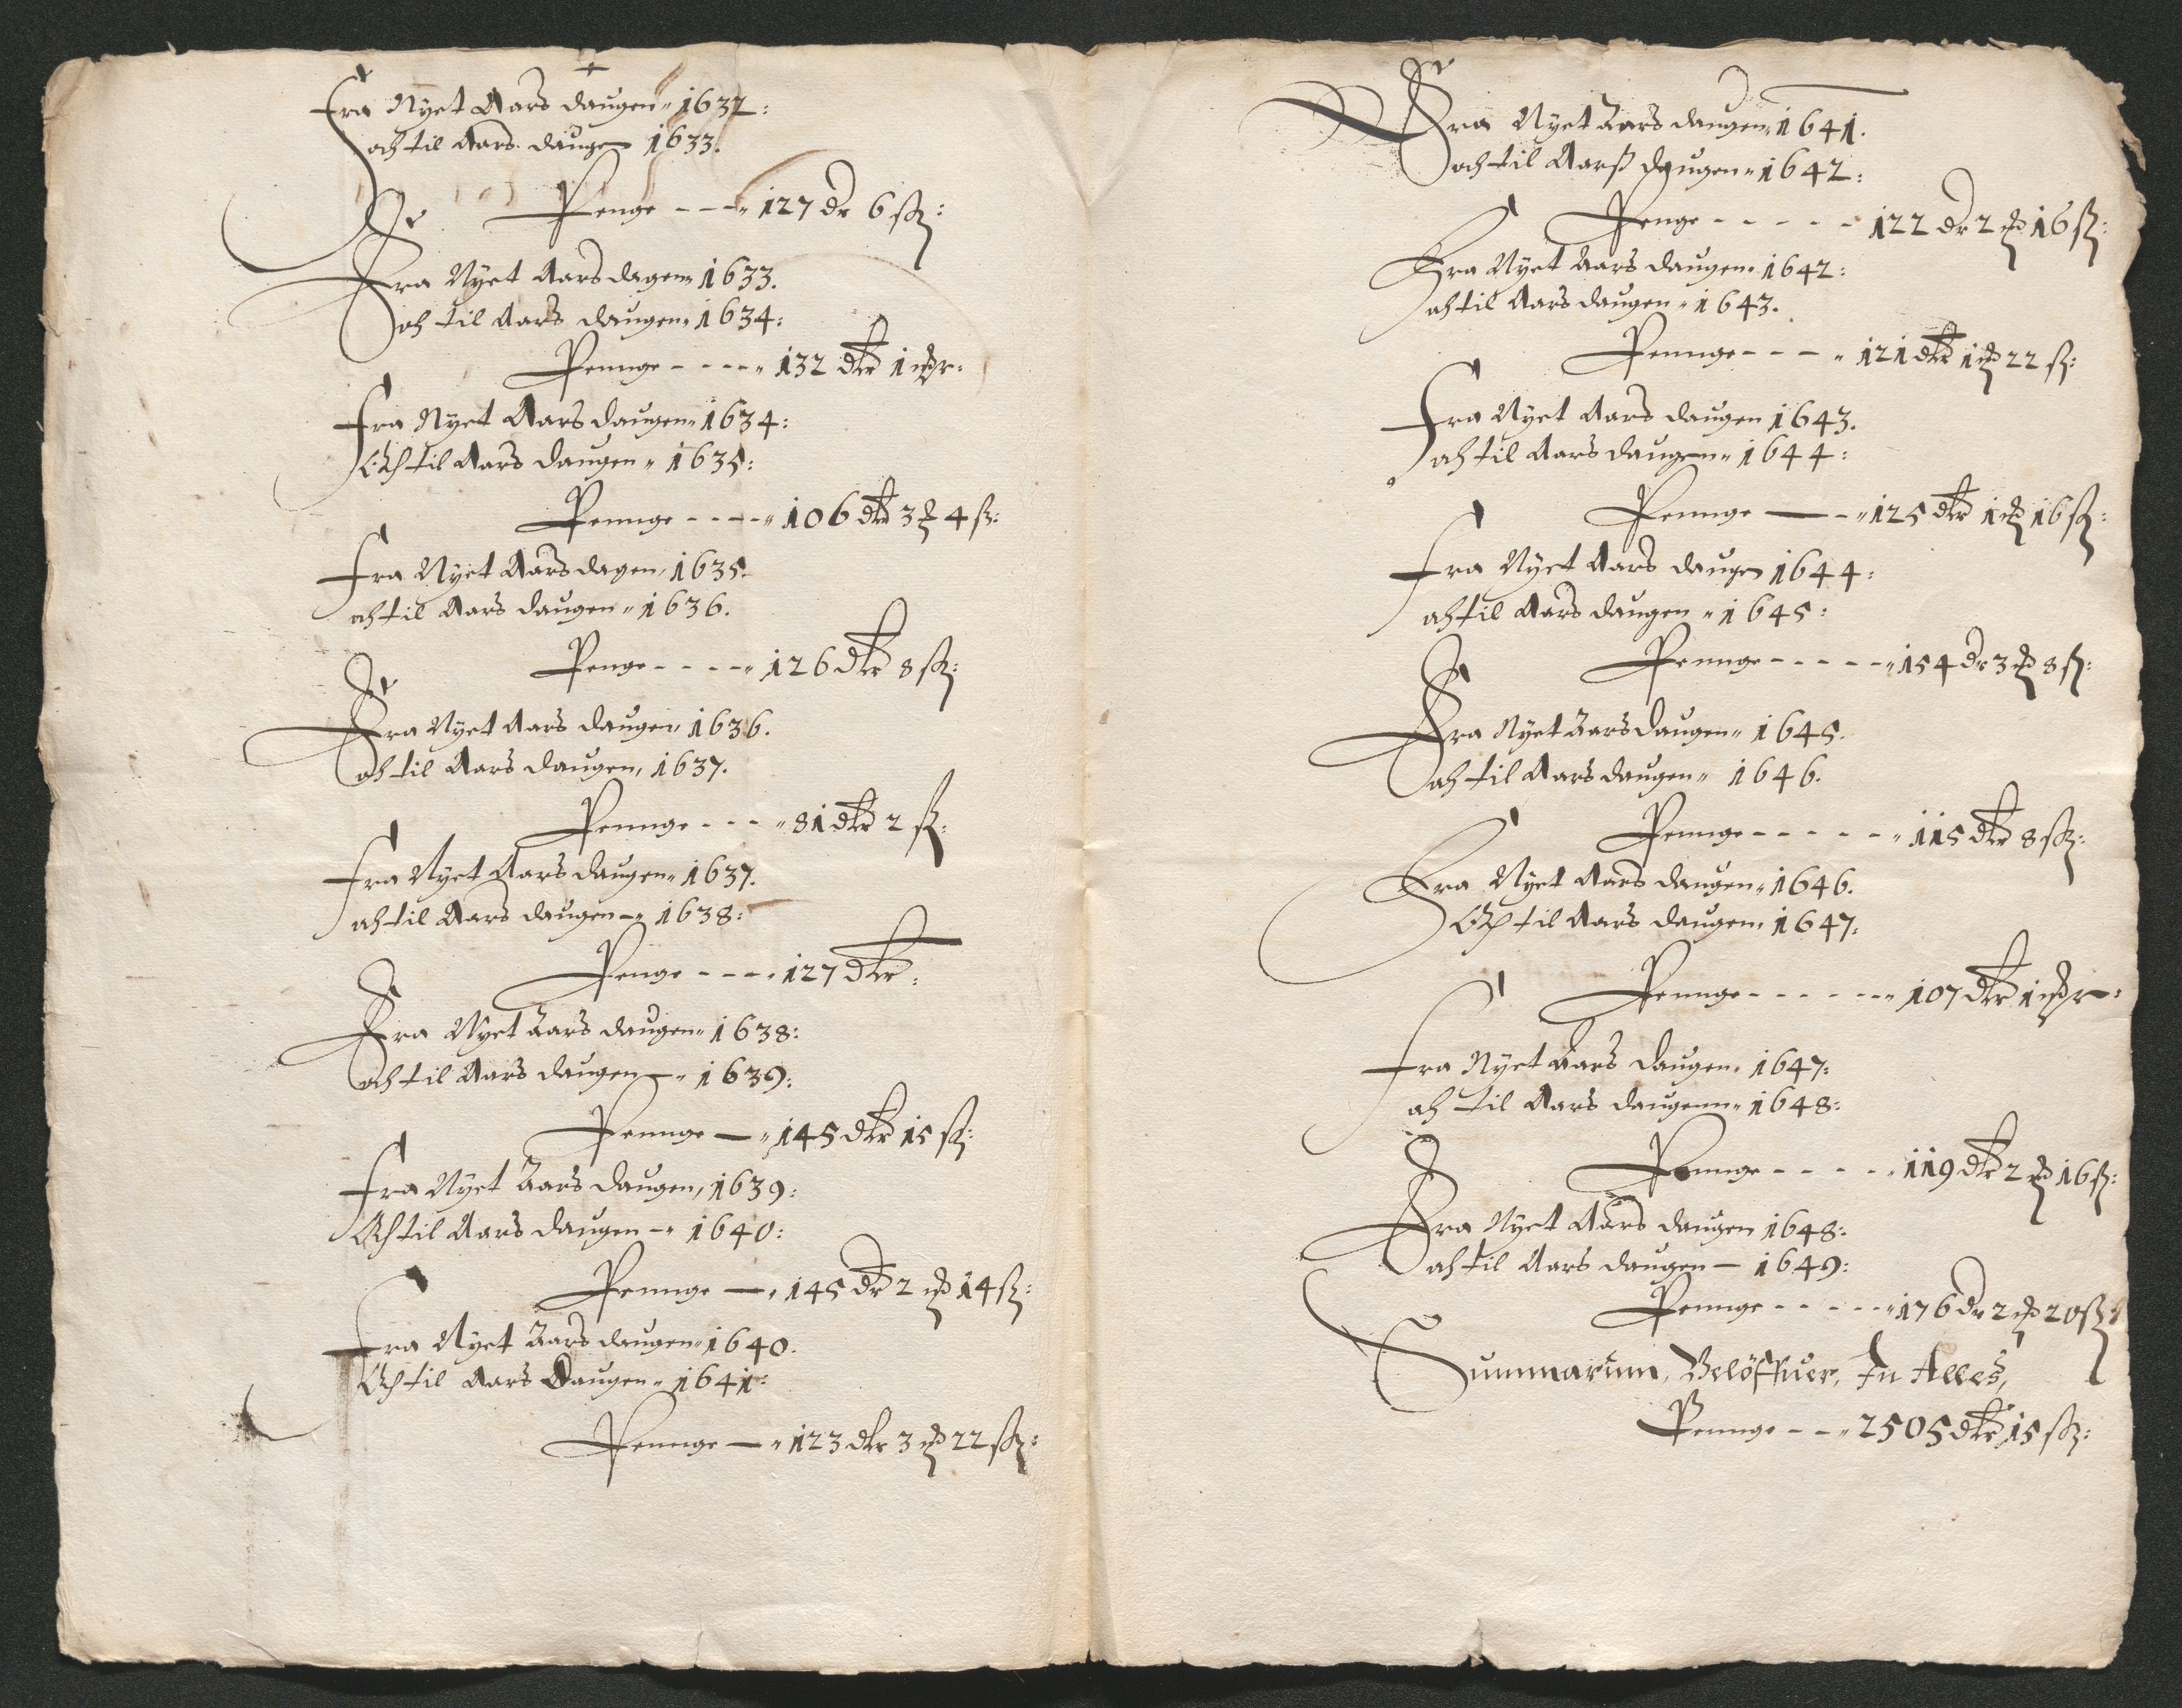 Fra Nyet Aars daugen 1632:
och til Aars daugen 1633.
Penge - - - 127 dr 6 sk:
Fra Nyet Aars dagen 1633.
och til Aars daugen 1634:
Pennge - - - - 132 dlr 1 mk:
Fra Nyet Aars daugen 1634:
Och til Aars daugen 1635:
Pennge - - - - 106 dlr 3 mk 4 sk:
Fra Nyet Aars dagen 1635:
och til Aars daugen 1636.
Penge - - - - 126 dlr 8 sk:
Fra Nyet Aars daugen 1636.
och til Aars daugen, 1637.
Pennge - - - 81 dlr 2 sk:
Fra Nyet Aars daugen 1637.
och til Aars daugen 1638:
Penge - - - - 127 dlr:
Fra Nyet Aars daugen 1638:
och til Aars daugen 1639:
Pennge — 145 dlr 15 sk:
Fra Nyet Aars daugen, 1639:
Och til Aars daugen 1640:
Pennge — 145 dr 2 mk 14 sk:
Fra Nyet Aars daugen 1640.
Och til Aars Daugen 1641:
Pennge — 123 dlr 3 mk 22 sk:
Fra Nyet Aars daugen, 1641.
och til Aarß daugen 1642:
Penge - - - - - 122 dr 2 mk 16 sk:
Fra Nyet Aars daugen 1642:
och til Aars daugen 1643.
Pennge - - - - 121 dlr 1 mk 22 sk:
Fra Nyet Aars daugen 1643.
och til Aars daugen 1644:
Pennge — 125 dlr 1 mk 16 sk:
Fra Nyet Aars daugen 1644:
och til Aars daugen 1645:
Pennge - - - - - 154 dr 3 mk 8 sk:
Fra Nyet Aars daugen 1645.
och til Aars daugen 1646.
Pennge - - - - - 115 dlr 8 sk:
Fra Nyet Aars daugen 1646.
Och til Aars daugen 1647:
Pennge - - - - - - 107 dlr 1 mk:
Fra Nyet Aars daugen 1647:
och til Aars daugenn 1648:
Pennge - - - - - 119 dlr 2 mk 16 sk:
Fra Nyet Aars daugen 1648:
och til Aars daugen — 1649:
Pennge - - - - - 176 dr 2 mk 20 sk
Summarum, Beløffuer, In Alles,
Pennge - - 2505 dlr 15 sk: